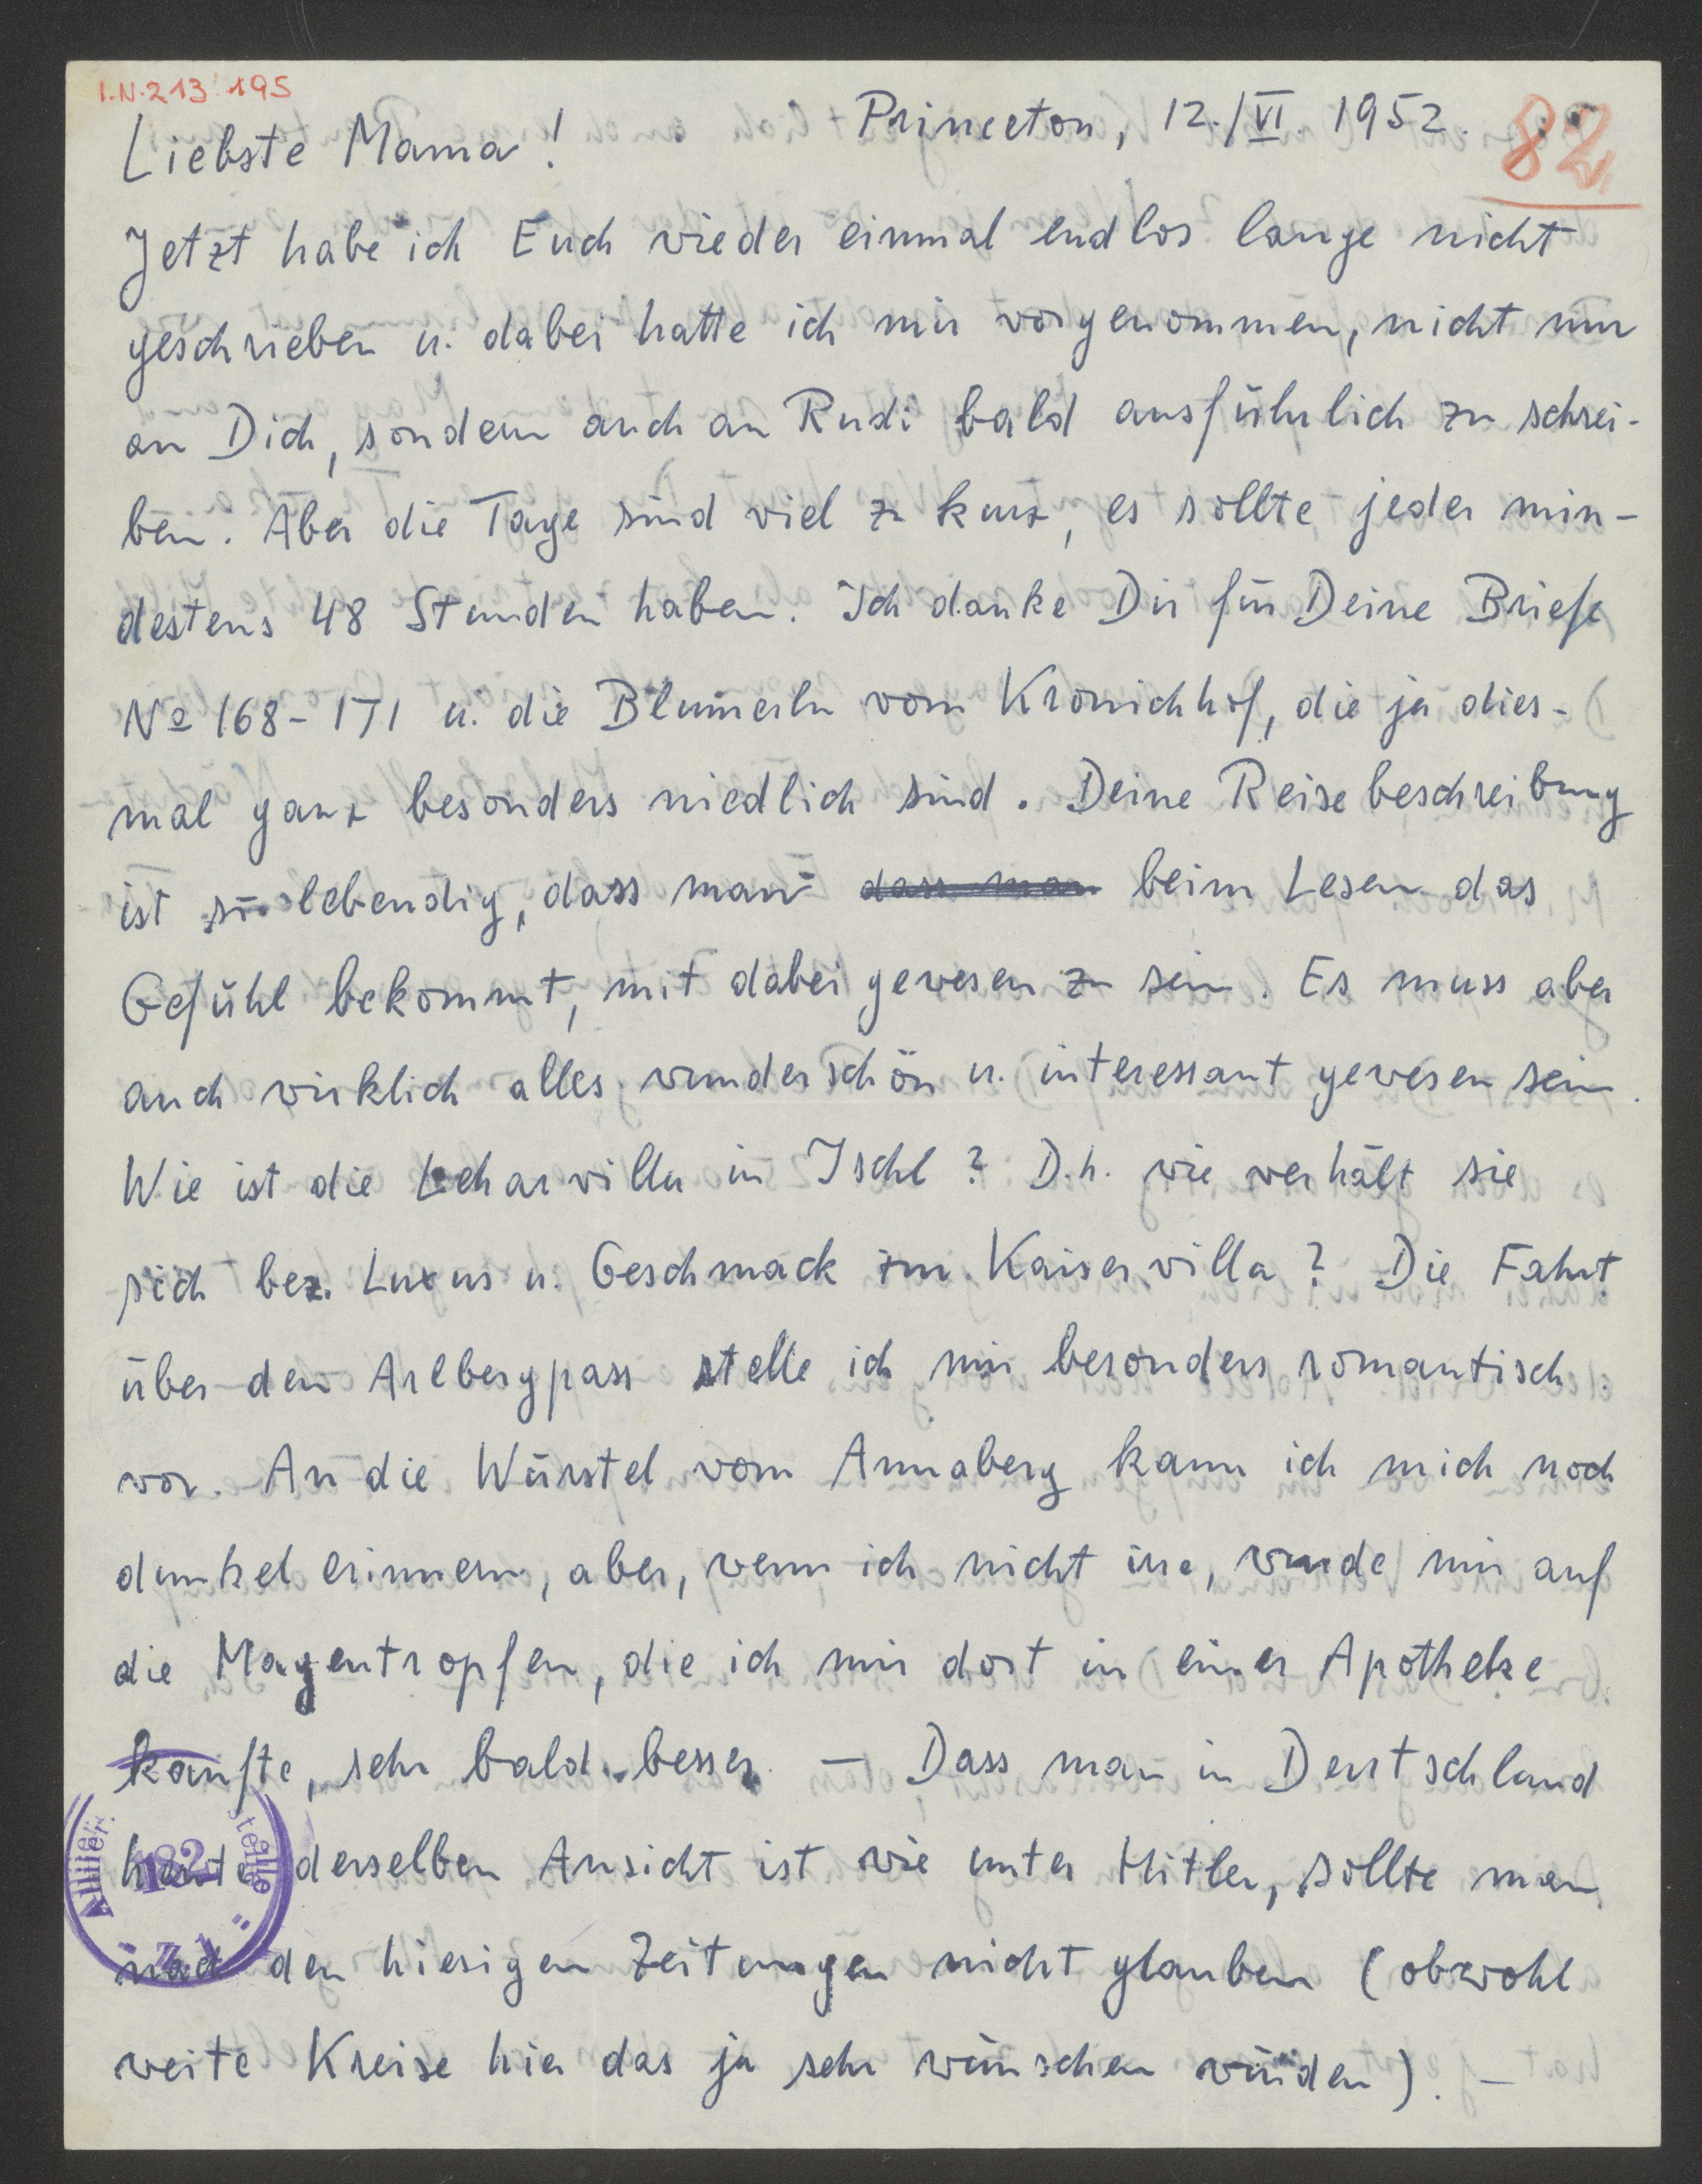 I.N. 213.195
Princeton, 12./VI. 1952.
82
Liebste Mama!
Jetzt habe ich Euch wieder einmal endlos lange nicht
geschrieben u. dabei hatte ich mir vorgenommen, nicht nur
an Dich, sondern auch an Rudi bald ausführlich zu schrei-
ben. Aber die Tage sind viel zu kurz, es sollte jeder min-
destens 48 Stunden haben. Ich danke Dir für Deine Briefe
No 168-171 u. die Blümerln vom Kronichhof, die ja dies-
mal ganz besonders niedlich sind. Deine Reisebeschreibung
ist so lebendig, dass man dass man beim Lesen das
Gefühl bekommt, mit dabei gewesen zu sein. Es muss aber
auch wirklich alles wunderschön u. interessant gewesen sein.
Wie ist die Leharvilla in Ischl? D.h. wie verhält sie
sich bez. Luxus u. Geschmack zur Kaiservilla? Die Fahrt
über den Arlbergpass stelle ich mir besonders romantisch
vor. An die Würstel vom Annaberg kann ich mich noch
dunkel erinnern, aber, wenn ich nicht irre, wurde mir auf
die Magentropfen, die ich mir dort in einer Apotheke
kaufte, sehr bald besser. – Dass man in Deutschland
heute derselben Ansicht ist wie unter Hitler, sollte man
nach den hiesigen Zeitungen nicht glauben (obwohl
weite Kreise hier das ja sehr wünschen würden). –
182